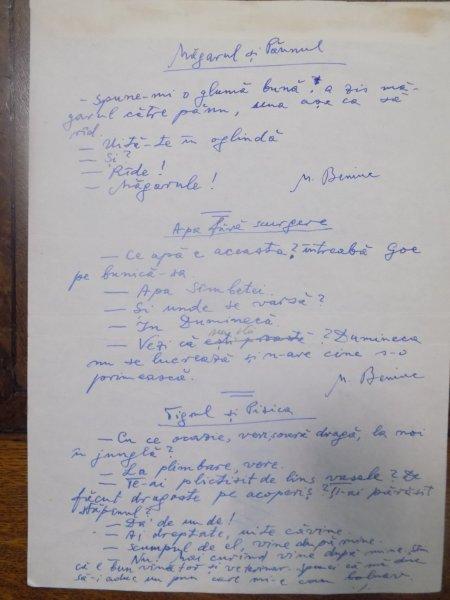 Măgarul și Păunul
— Spune-mi o glumă bună, a zis mă-
garul către păun, una așa ca să
rîd.
— Uită-te în oglindă
— Și?
— Rîde!
— Măgarule!
M. Beniuc
Apa fără scurgere
— Ce apă e aceasta? întreabă Goe
pe bunică-sa
— Apa Sîmbetei.
— Și unde se varsă?
— În Duminecă
— Vezi că ești proastă? Dumineca
nu se lucrează și n-are cine s-o
primească.
M. Beniuc
Tigrul și Pisica
— Cu ce ocazie, verișoară dragă, la noi
în junglă?
— La plimbare, vere.
— Te-ai plictisit de lins vasele? De
făcut dragoste pe acoperiș? Ți-ai părăsit
stăpînul?
— Da' de unde!
— Ai dreptate, uite că vine.
— Scumpul de el, vine după mine.
— Nu, mai curînd vine după mine,
că e bun vînător și veterinar. Spune-i că mă duc
să-i aduc un pui care mi-e cam bolnav.